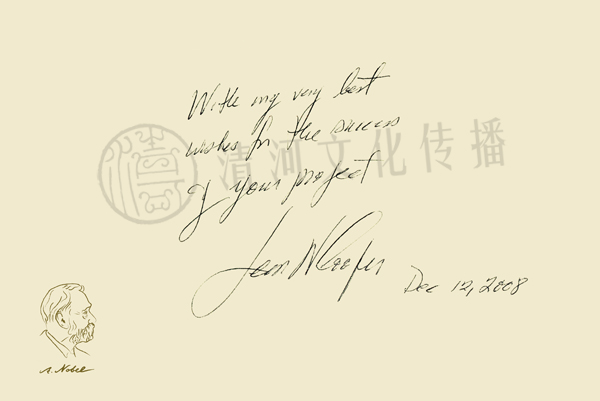 With my very best
wishes for the success
of your project
Leon N Cooper
Dec 12, 2008
清河文化传播
A. Nobel